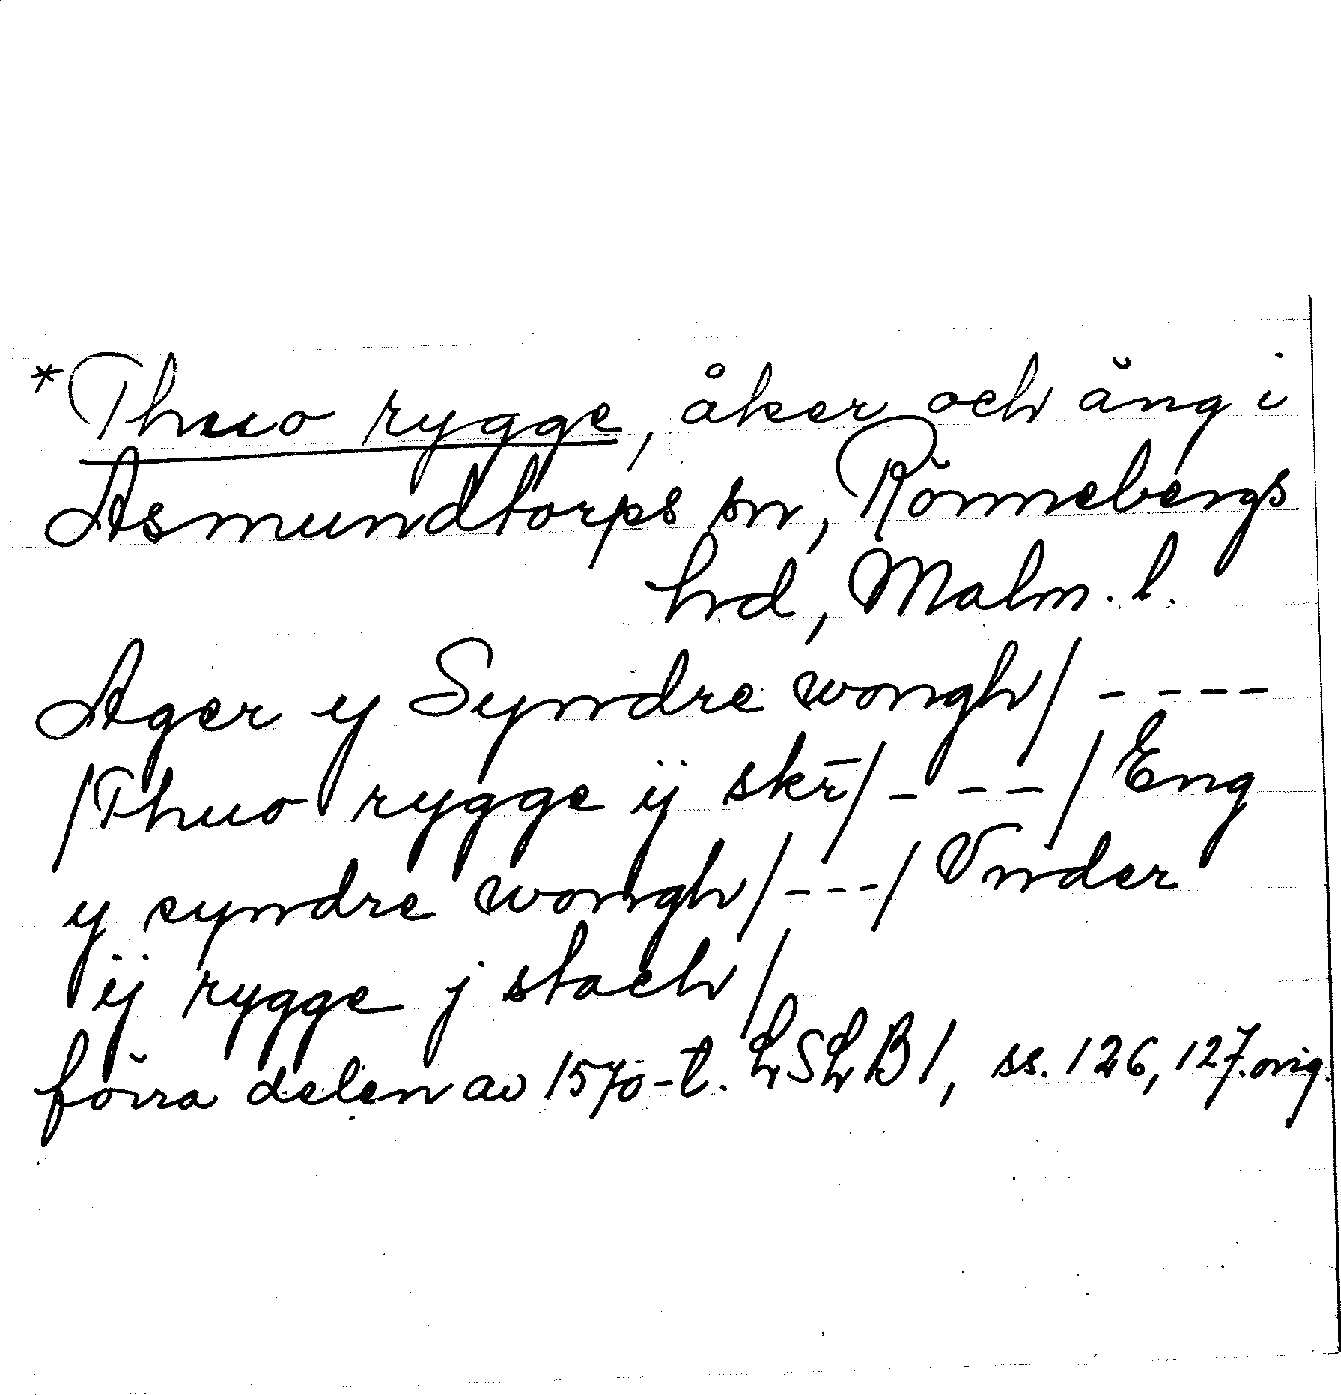 *Thuo rygge, åker och äng i
Asmundtorps sn, Rönnebergs
hd, Malm. l.
Ager y Syndre wongh/ ----
/Thuo rygge ij skr̄/ - ---/ Eng
y syndre wongh/ ---/ Vnder
ij rygge j stach/
förra delen av 1570-t. LSLB 1, ss. 126, 127. orig.